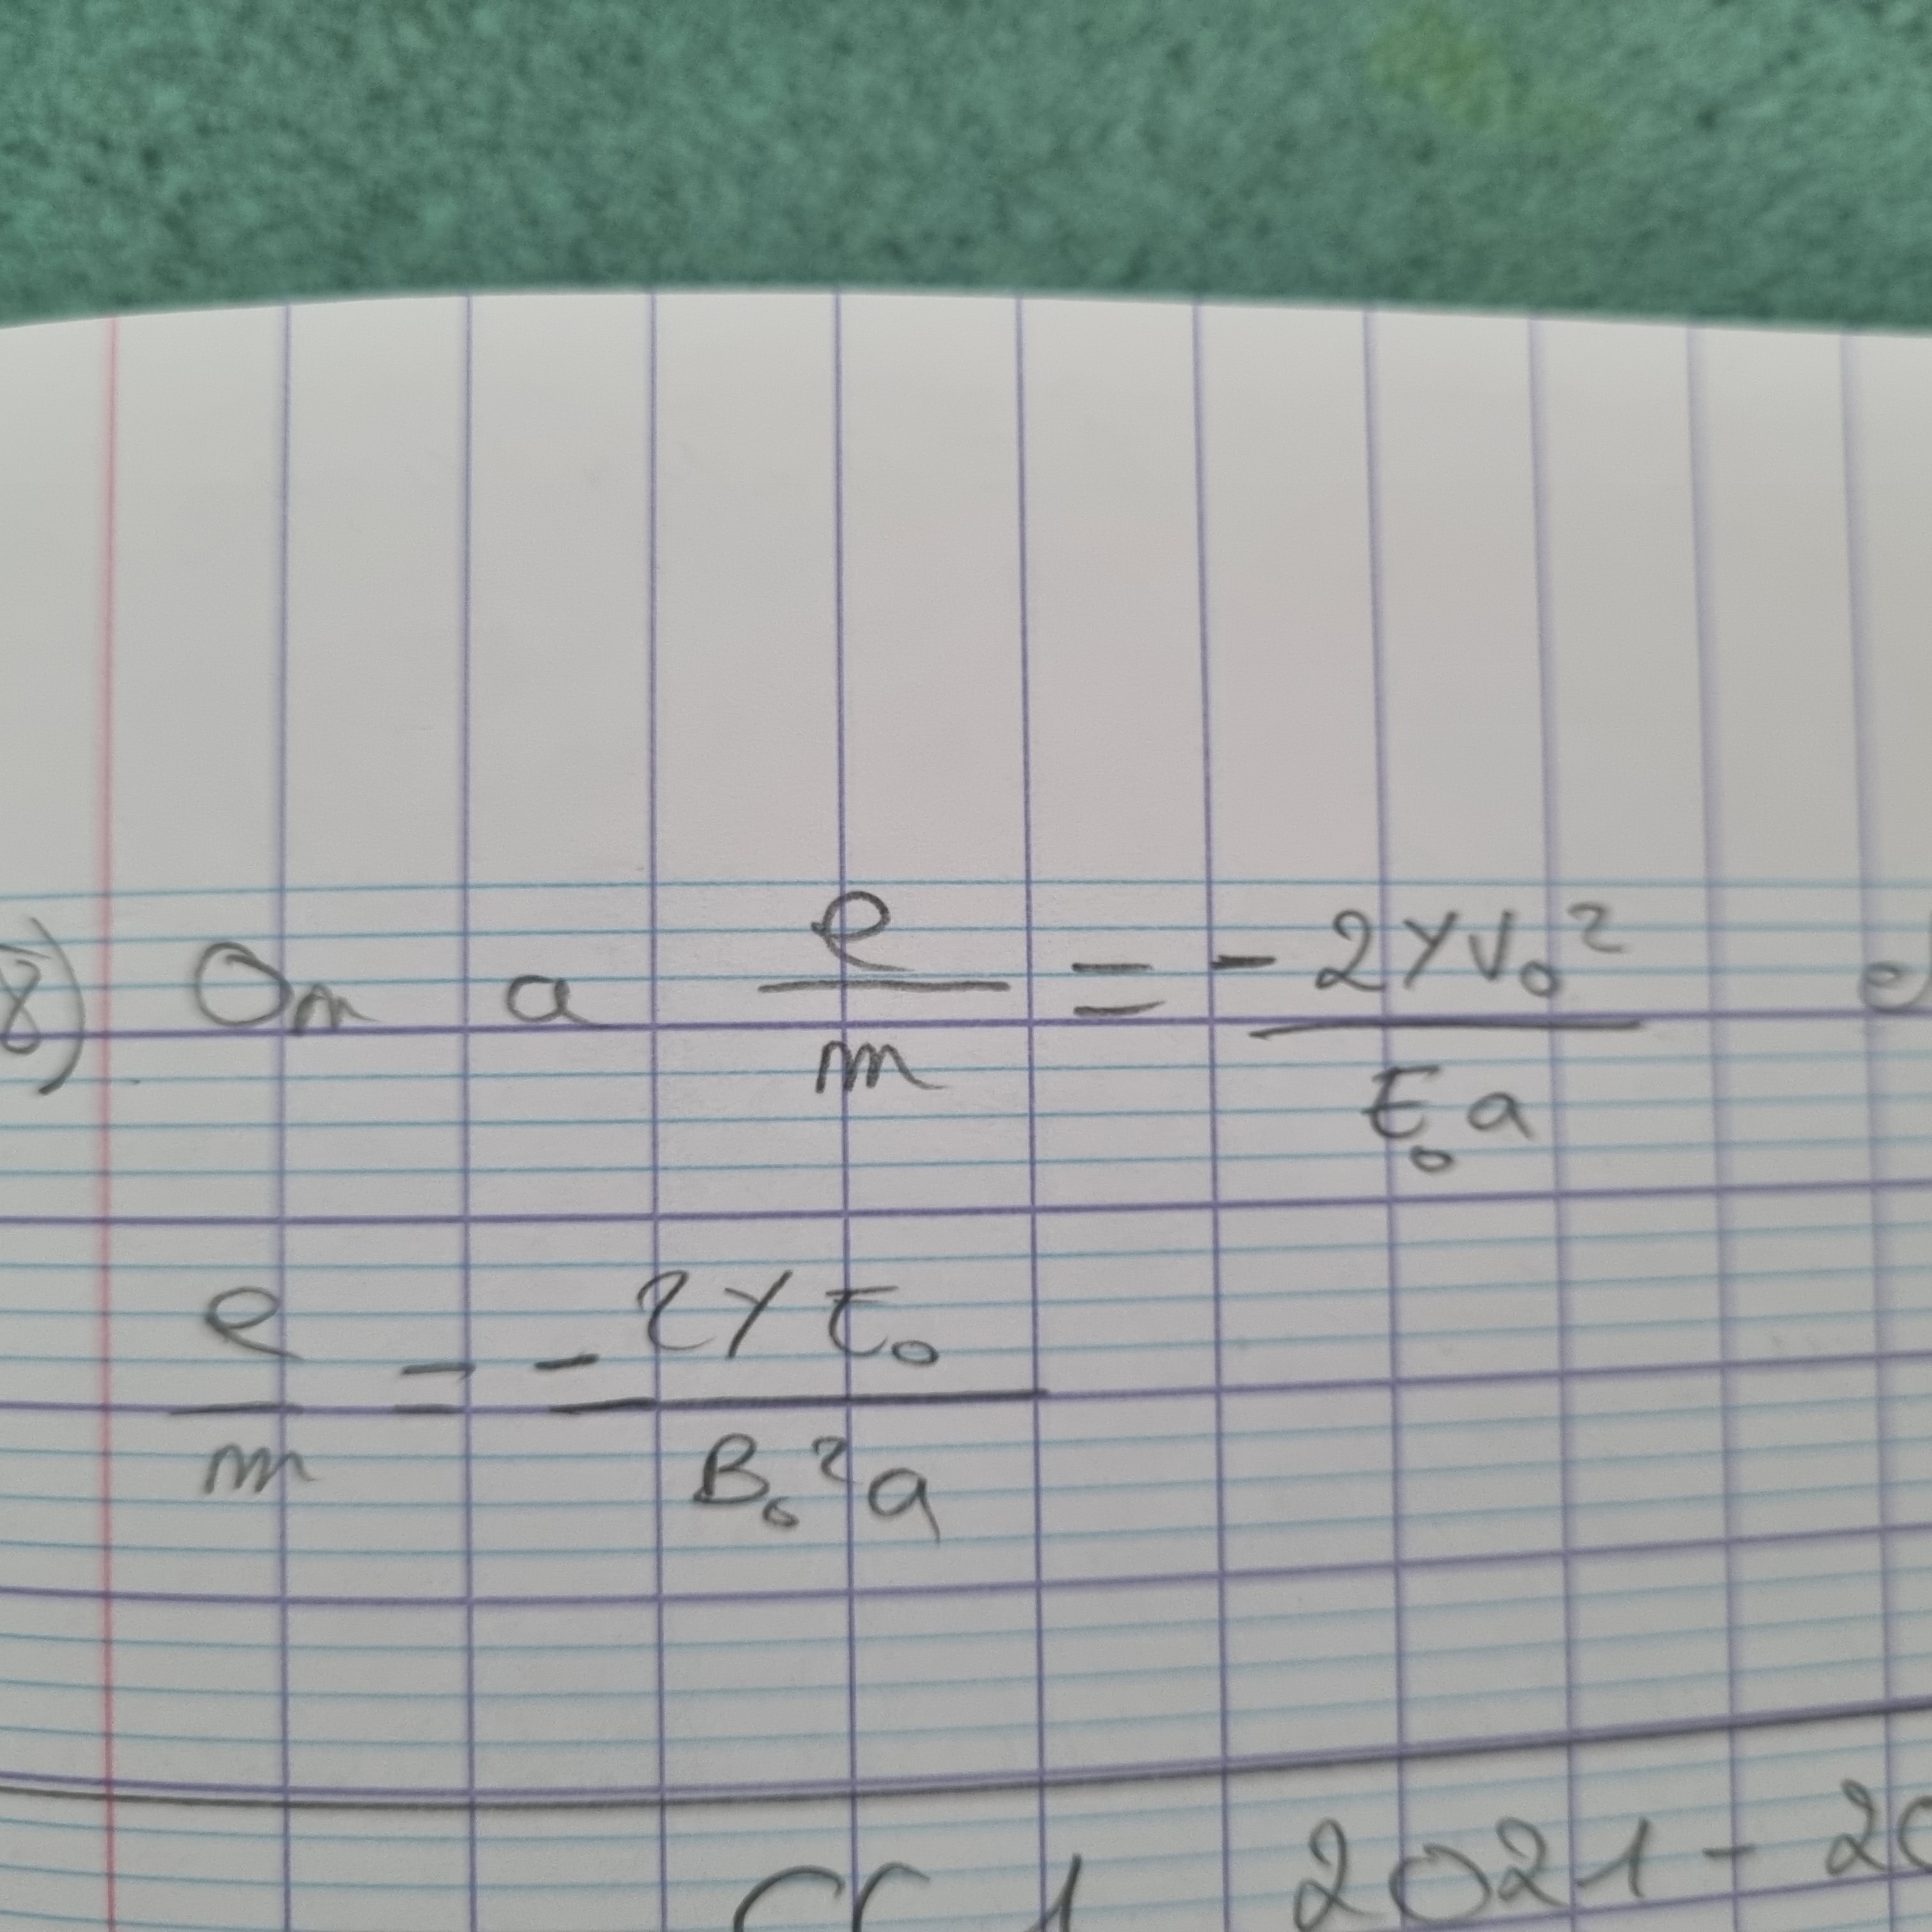 8) On a e/m = - 2YV₀²/E₀a
e/m = - 2YE₀/B₀²a
2021 - 20